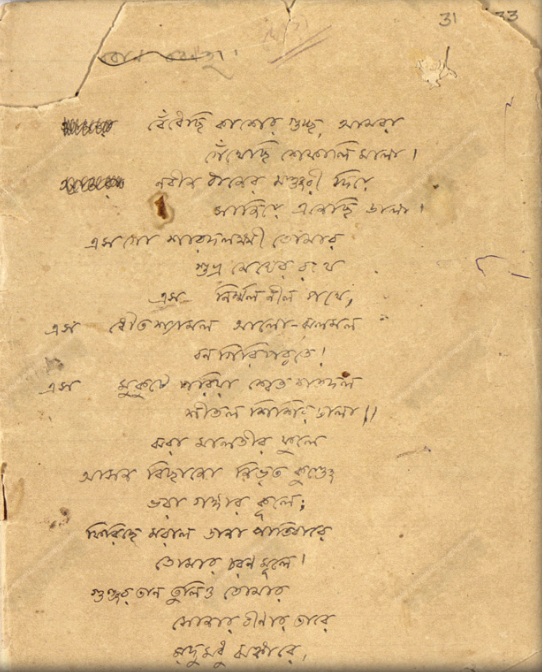 31 33
বেঁধেছি কাশের গুচ্ছ, আমরা
গেঁথেছি শেফালি মালা।
নবীন ধানের মঞ্জরী দিয়ে
সাজিয়ে এনেছি ডালা।
এস গো শারদলক্ষ্মী তোমার
শুভ্র মেঘের রথে
এস নির্ম্মল নীল পথে,
এস ধৌত শ্যামল আলো-ঝলমল
বনগিরিপর্ব্বতে!
এস মুকুটে পরিয়া শ্বেত শতদল
শীতল শিশির ঢালা।।
ঝরা মালতীর ফুলে
আসন বিছানো নিভৃত কুঞ্জে
ভরা গঙ্গার কূলে;
ফিরিছে মরাল ডানা পাতিবারে
তোমার চরণ মূলে!
গুঞ্জরতান তুলিও তোমার
সোনার বীণার তারে
মৃদু মধু ঝঙ্কারে,